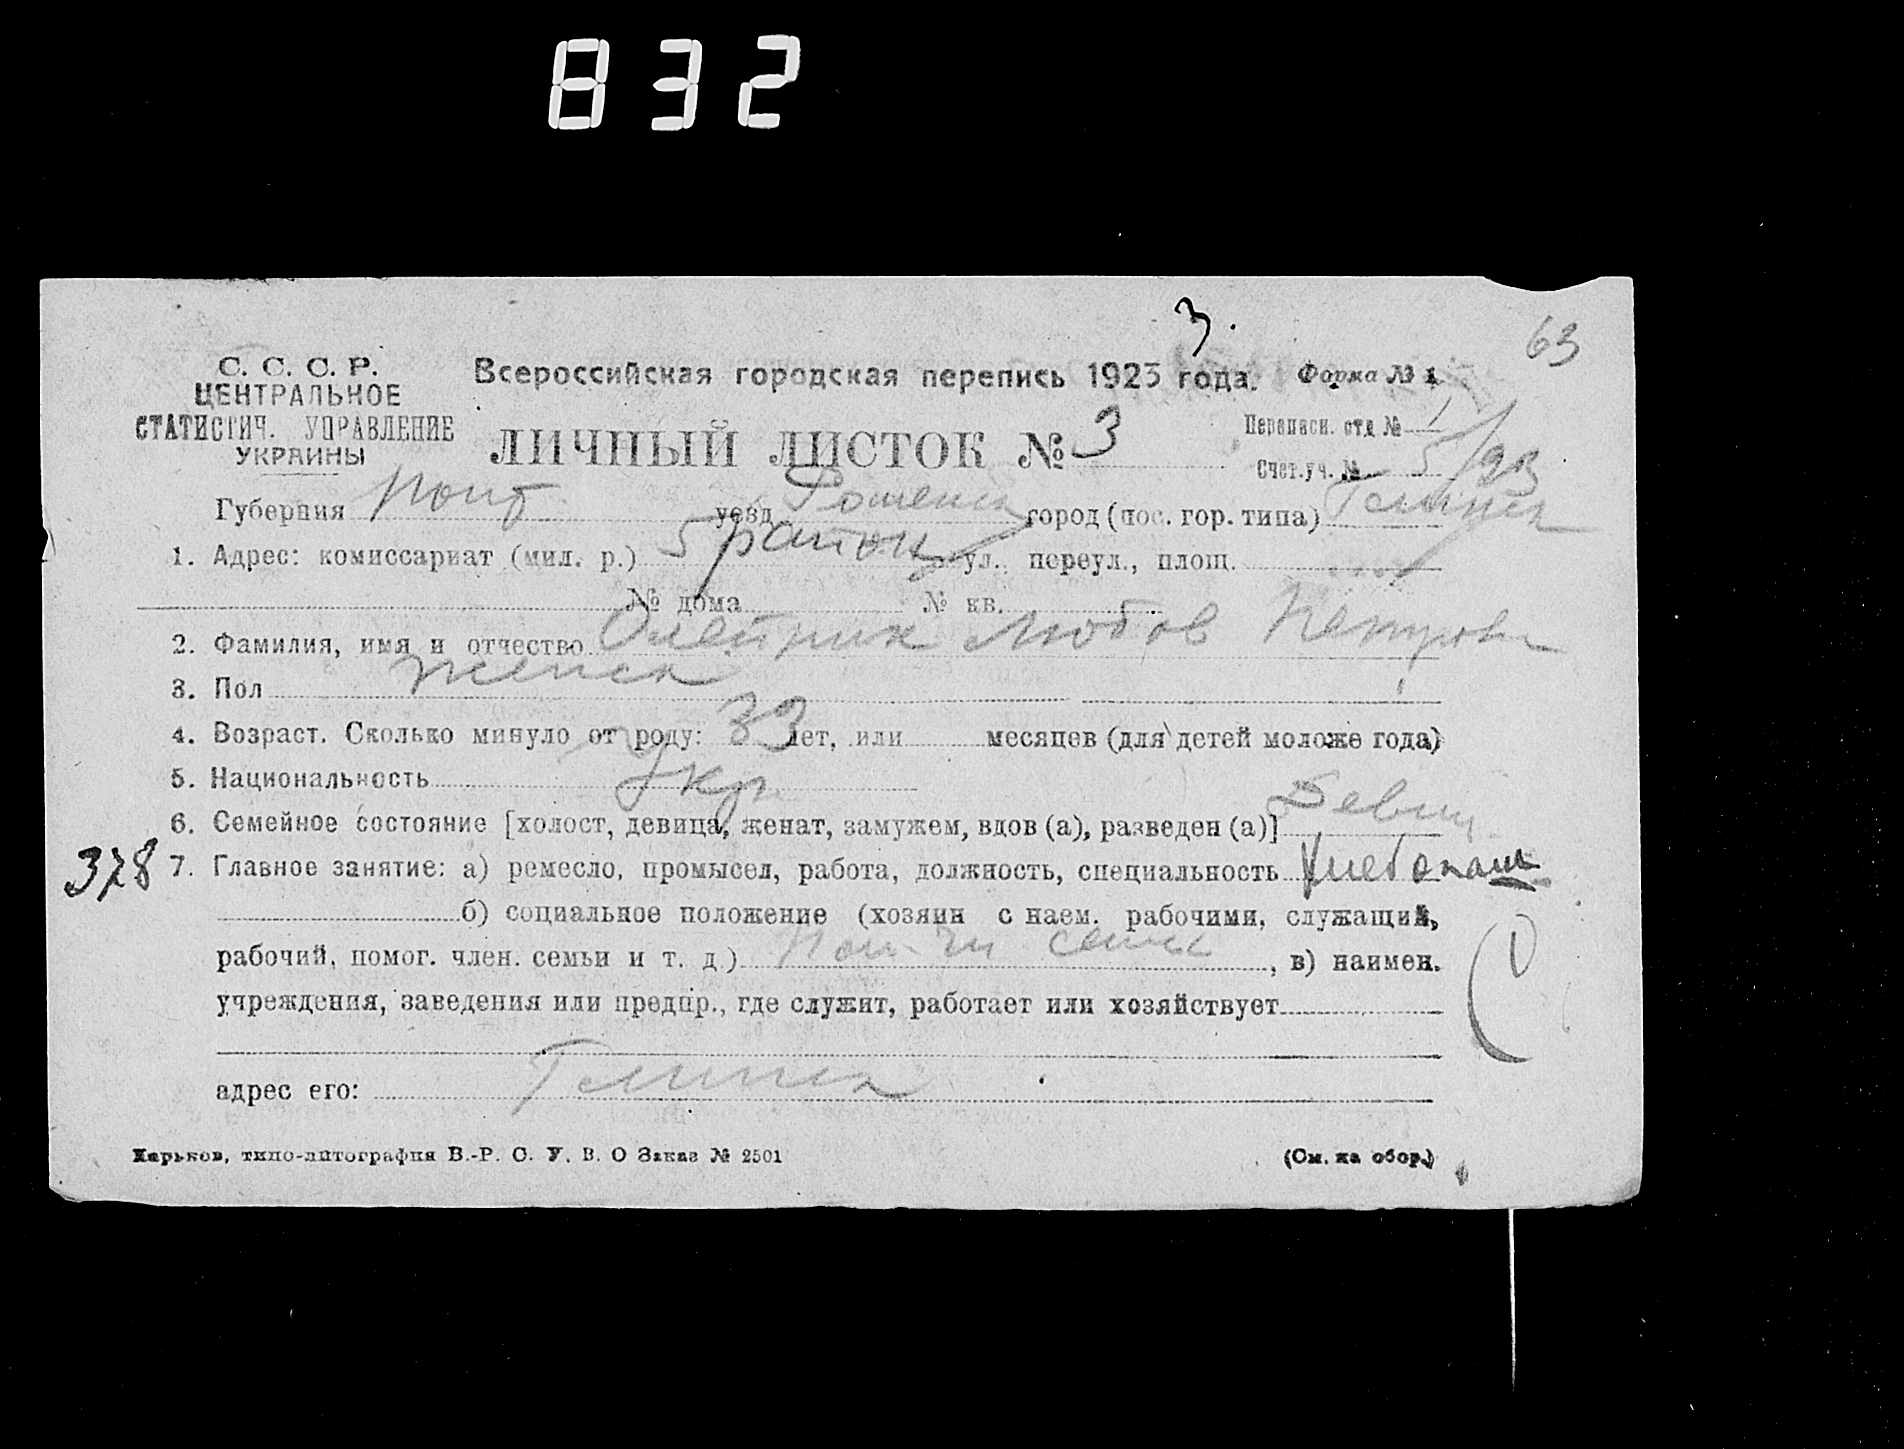 832
3.
63
С. С. С. Р.
ЦЕНТРАЛЬНОЕ
СТАТИСТИЧ. УПРАВЛЕНИЕ
УКРАИНЫ
Всероссийская городская перепись 1923 года. Форма № 1
ЛИЧНЫЙ ЛИСТОК № 3
Переписн. отд. № 1
Счет.уч. № 5/93
Губерния Полт уезд Роменск город (пос. гор. типа) Глинск
1. Адрес: комиссариат (мил. р.) 5 район ул., переул., площ.
№ дома № кв.
2. Фамилия, имя и отчество Олейник Любов Петровн
3. Пол женск
4. Возраст. Сколько минуло от роду: 33 лет, или месяцев (для детей моложе года)
5. Национальность Укр
6. Семейное состояние [холост, девица, женат, замужем, вдов (а), разведен (а)] Девиц
378 7. Главное занятие: а) ремесло, промысел, работа, должность, специальность Хлебопаш
б) социальное положение (хозяин с наем. рабочими, служащий,
рабочий, помог. член. семьи и т. д.) Пом. чл семьи, в) наимен.
учреждения, заведения или предпр., где служит, работает или хозяйствует
адрес его: Глинск
Харьков, типо-литография В.-Р. С. У. В. О Заказ № 2501
(См. на обор.)